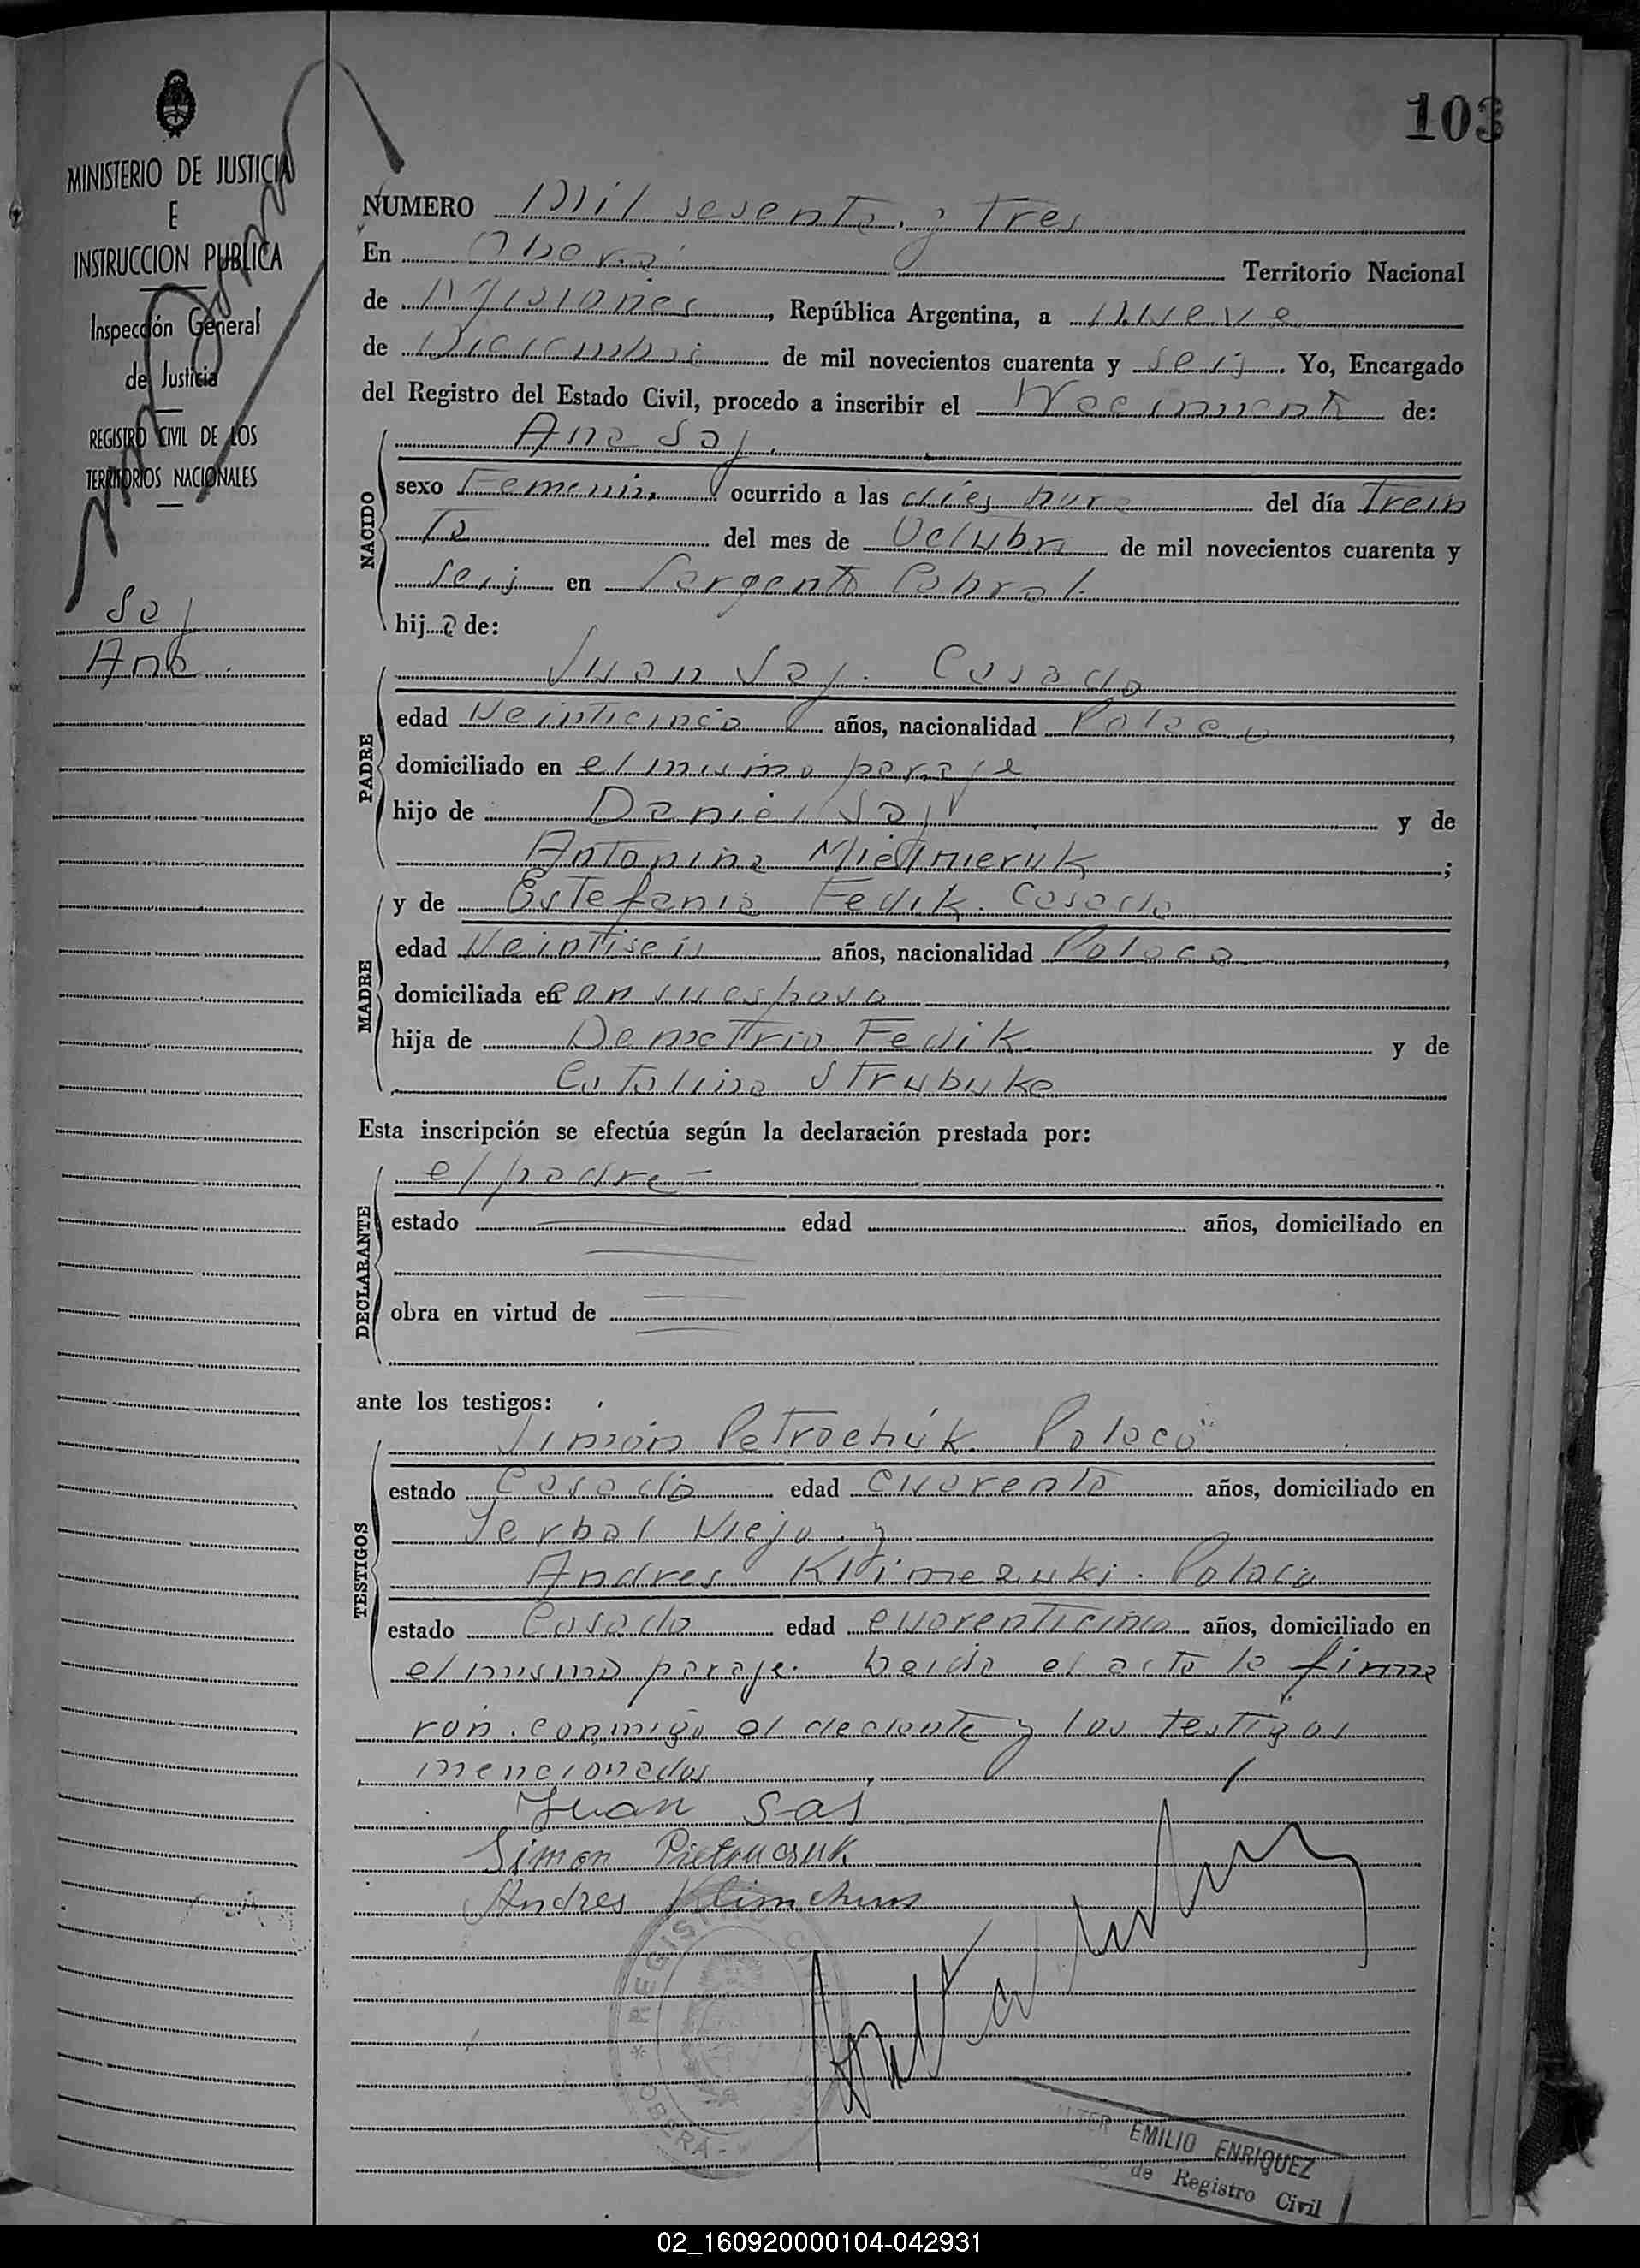 103
MINISTERIO DE JUSTICIA
E
INSTRUCCION PUBLICA
Inspección General
de Justicia
REGISTRO CIVIL DE LOS
TERRITORIOS NACIONALES
Soj
Ana
NUMERO Mil sesenta y tres
En Oberá Territorio Nacional
de Misiones, República Argentina, a nueve
de Diciembre de mil novecientos cuarenta y seis. Yo, Encargado
del Registro del Estado Civil, procedo a inscribir el Nacimiento de:
NACIDO
Ana Soj.
sexo Femenino ocurrido a las dies hora del día Trein
Ta del mes de Octubre de mil novecientos cuarenta y
seis en Sargento Cabral.
hija de:
PADRE
Juan Soj. Casado
edad Veinticinco años, nacionalidad Polaco,
domiciliado en el mismo paraje
hijo de Daniel Soj y de
Antonina Mielnieruk;
MADRE
y de Estefania Fedik. Casada
edad Veintiseis años, nacionalidad Polaca,
domiciliada en con su esposo
hija de Demettrio Fedik y de
Catalina Strubuka
Esta inscripción se efectúa según la declaración prestada por:
DECLARANTE
el padre
estado edad años, domiciliado en
obra en virtud de
ante los testigos:
TESTIGOS
Simón Petrochuk. Polaco
estado Casado edad cuarenta años, domiciliado en
Yerbal Viejo y
Andres Klimezuki. Polaco
estado Casado edad cuarenticinco años, domiciliado en
el mismo paraje. Leida el acta la firma
ron conmigo el declante y los testigos
mencionados
Juan Saj
Simon Pietruczuk
Andres Klimchuk
REGISTRO CIVIL
* OBERÁ -
EMILIO ENRIQUEZ
de Registro Civil
02_160920000104-042931